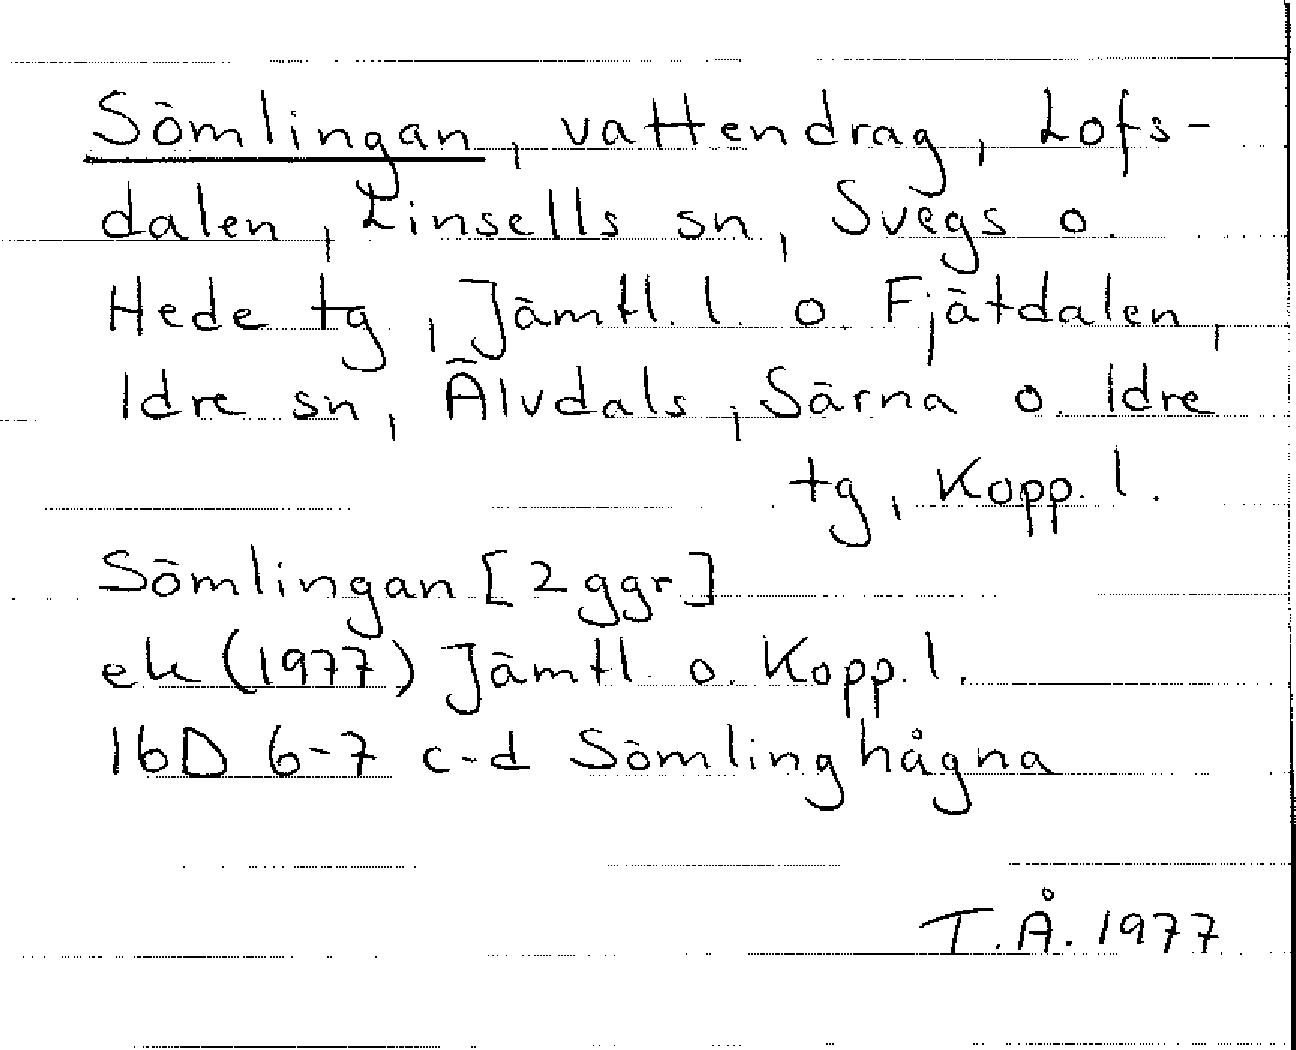 Sömlingan, vattendrag, Lofs-
dalen, Linsells sn, Svegs o.
Hede tg, Jämtl. l. o. Fjätdalen,
Idre sn, Älvdals, Särna o. Idre
tg, Kopp. l.
Sömlingan [2 ggr]
ek (1977) Jämtl. o. Kopp. l.
16D 6-7 c-d Sömlinghågna
T.Å. 1977